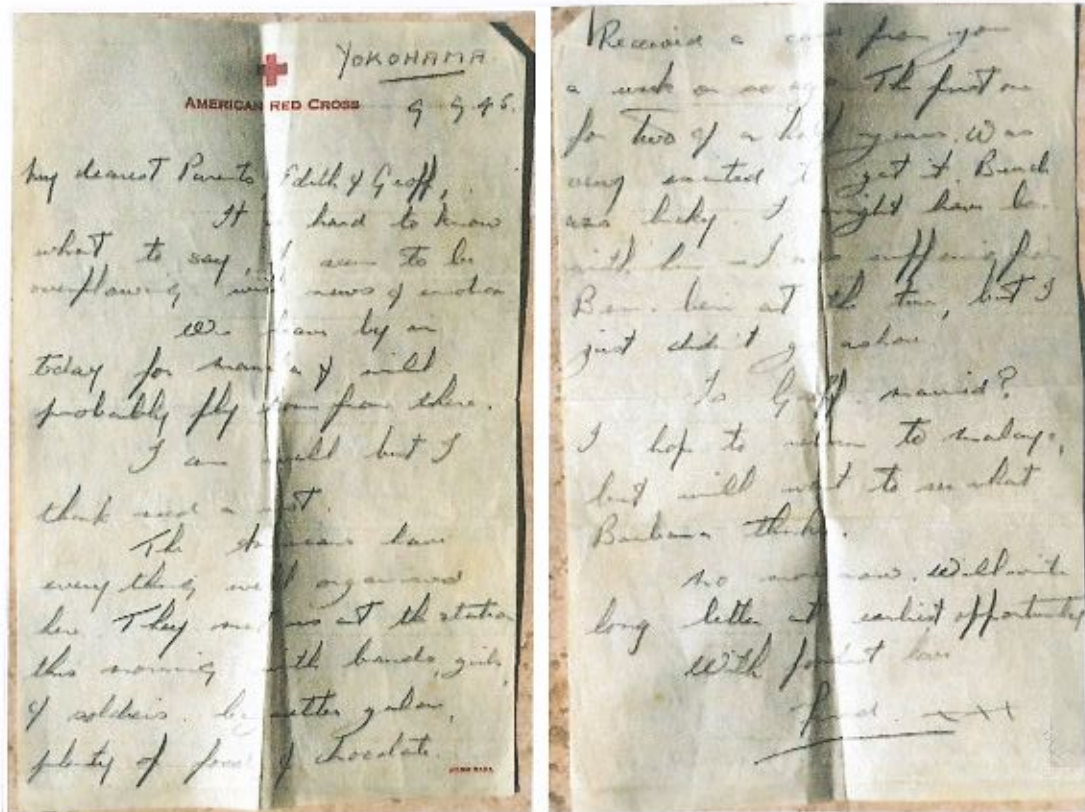 YOKOHAMA
AMERICAN RED CROSS
9 9 45.
My dearest Parents, Edith & Geoff,
It is hard to know
what to say, I seem to be
overflowing with news & emotion
We leave by air
today for Manila & will
probably fly home from there.
I am well but I
think need a rest.
The Americans have
everything well organised
here. They met us at the station
this morning with bands, girls,
& soldiers.
plenty of food & chocolate.
Received a card from you
a week or so ago. The first one
for two & a half years. Was
very excited to get it.
was lucky. I might have been
with him as I was suffering from
Beri-beri at the time, but I
just didn't go ashore
Is Geoff married?
I hope to return to Malaya,
but will wait to see what
Barbara thinks.
No more now. Will write
long letter at earliest opportunity
With fondest love